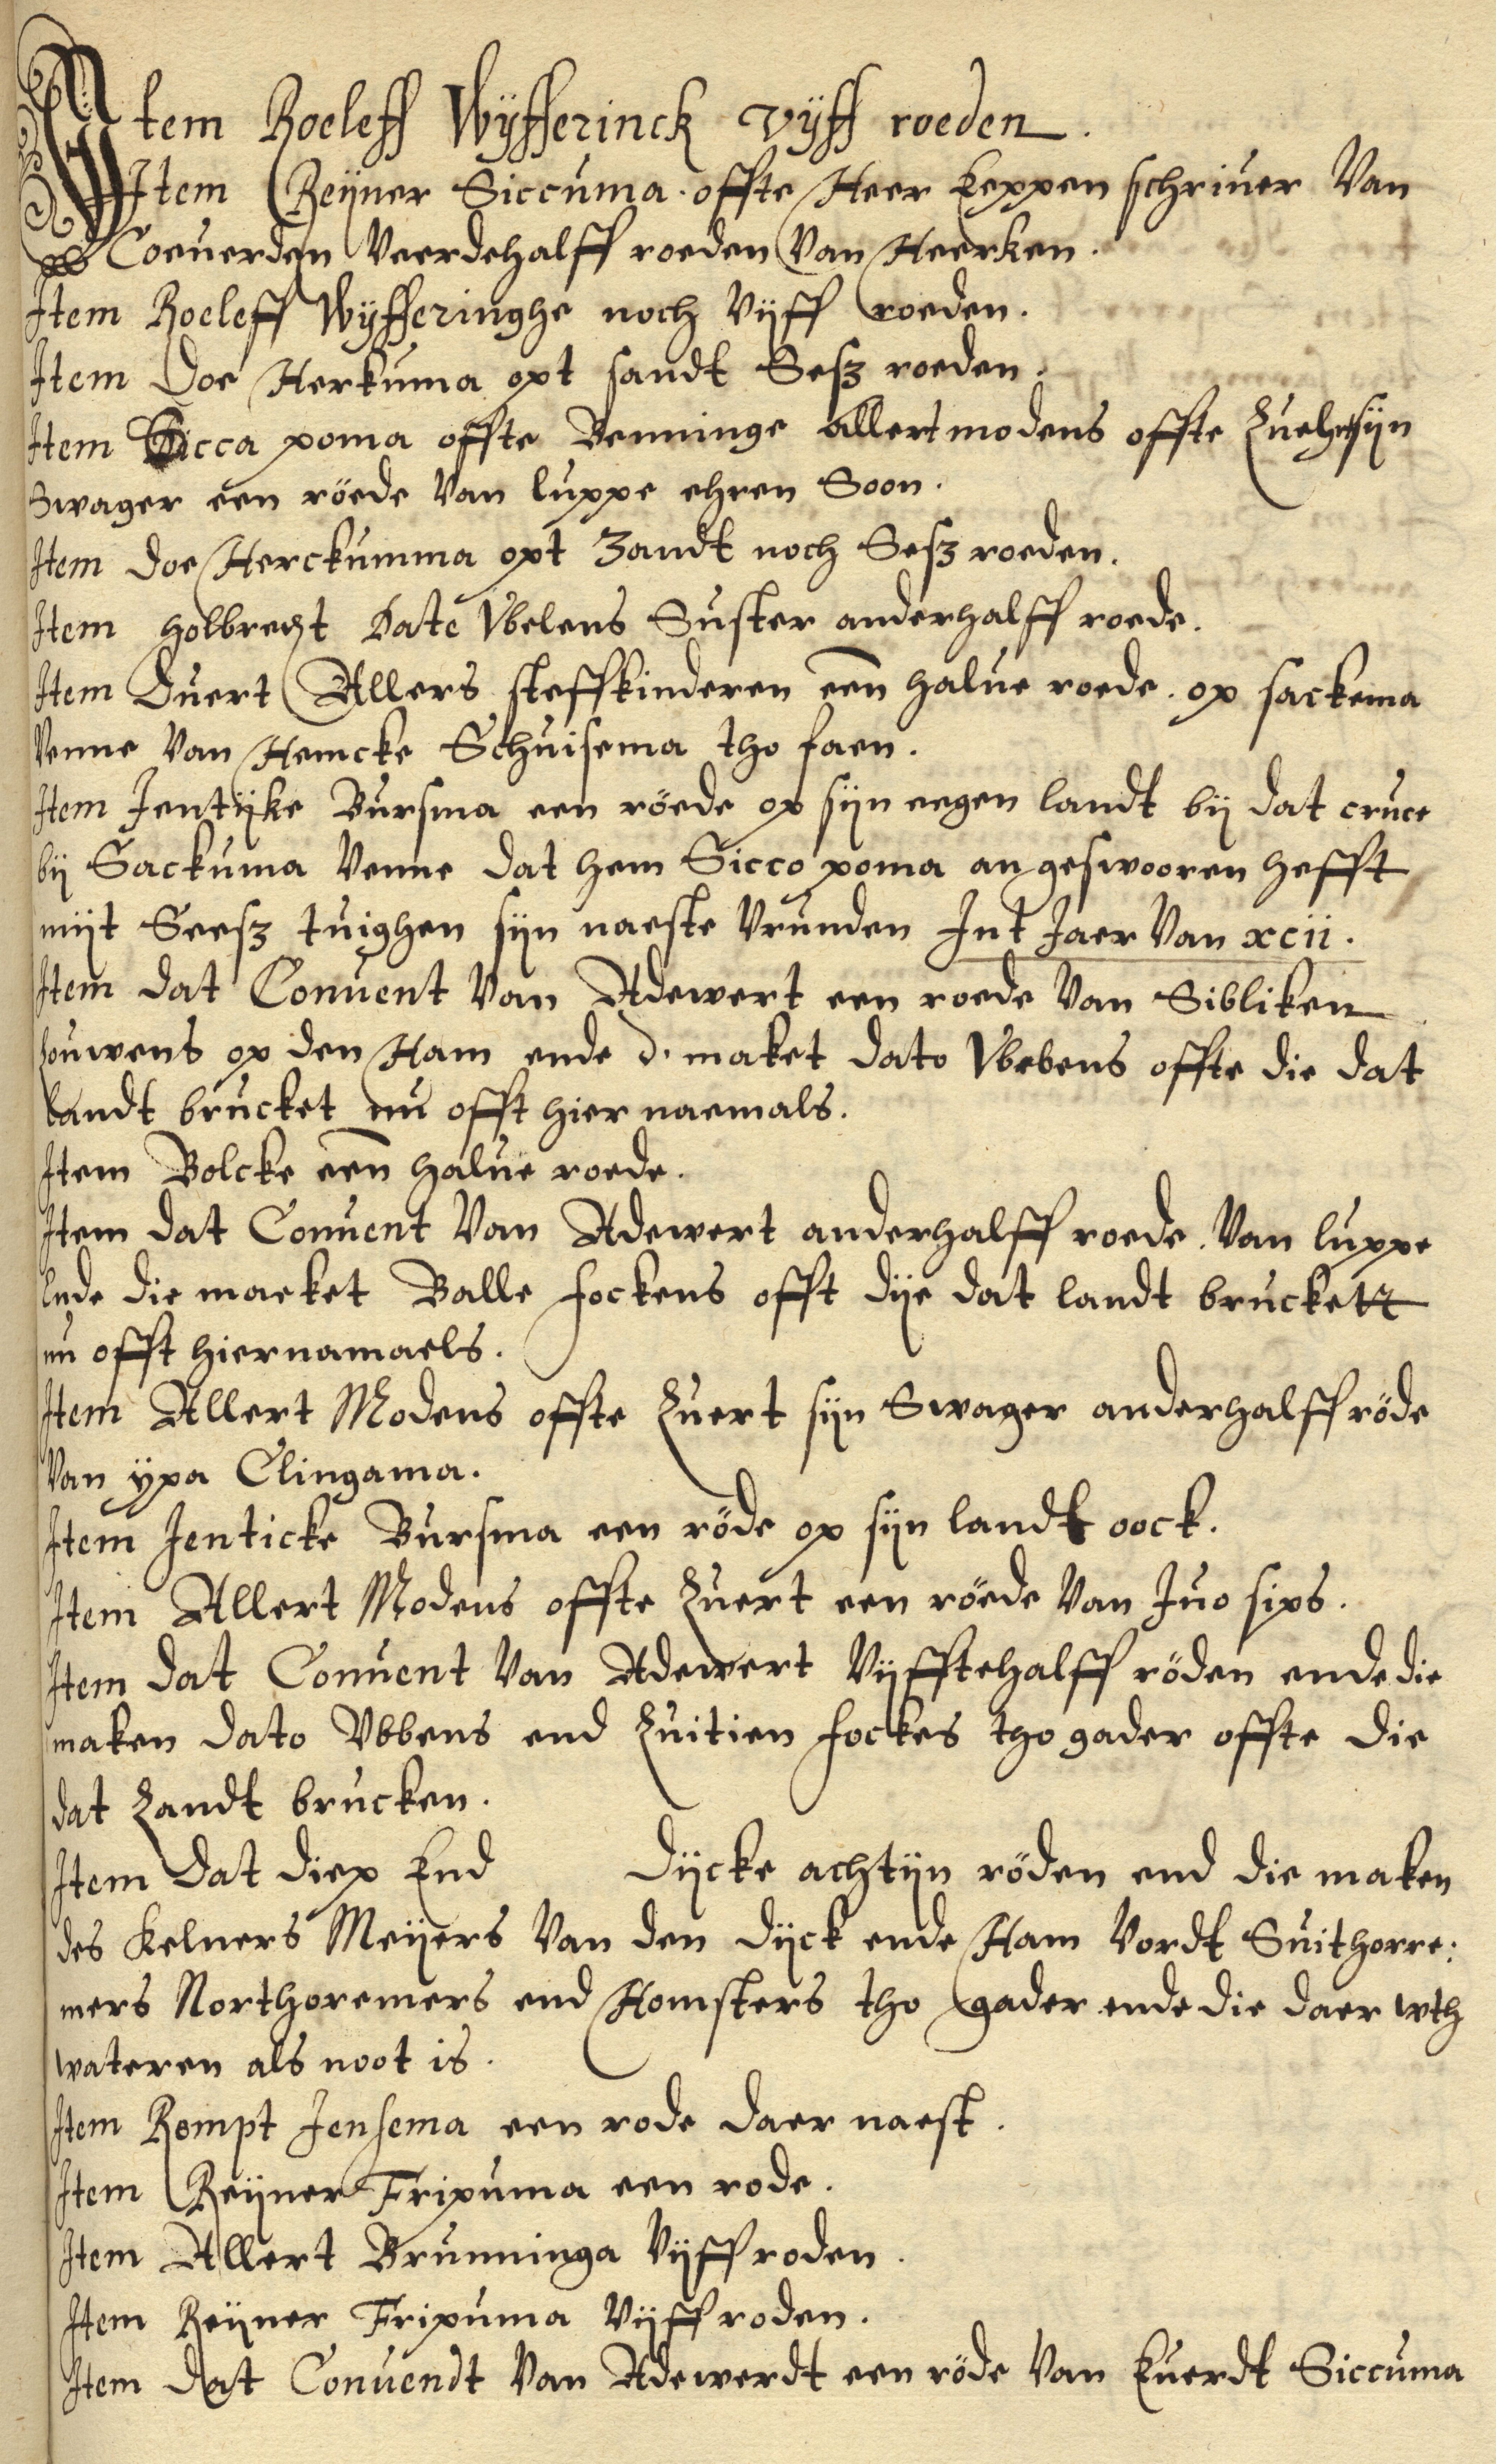 Item Roeleff Wÿfferinck vÿff roeden.
Item Reÿner Siccuma offte Heer Eeppen schriuer Van
Coeuerden Veerdehalff roeden Van Heerken.
Item Roeleff Wÿfferinghe noch Vÿff roeden.
Item Doe Herkuma opt sandt Sesz roeden.
Item Sicca poma offte Benninge allert modens offte sÿn
Swager een röede Van luppe ehren Soon.
Item Doe Herckumma opt Zandt noch Sesz roeden.
Item holbrecht Date Vbelens Suster anderhalff roede.
Item Duert Allers steffkinderen een halue roede. op sackema
Venne Van Hemcke Schuisema tho faen.
Item Jentÿke Bursma een röede op sÿn eegen landt bÿ dat cruce
bÿ Sackuma Venne dat hem Sicco poma an geswooren hefft
mÿt Seesz tuighen sÿn naeste Vrunden Int Jaer Van xcii.
Item dat Conuent Van Adewert een roede Van Sibliken
op den Ham ende d. maket dato Vbebens offte die dat
landt brucket nu offt hier naemals.
Item Bolcke een halue roede.
Item dat Conuent Van Adewert anderhalff roede. Van luppe
Ende die maeket Balle fockens offt dÿe dat landt bruckett
nu offt hiernamaels.
Item Allert Modens offte Zuert sÿn Swager anderhalff röde
Van ÿpa Clingama.
Item Jenticke Bursma een röde op sÿn landt oock.
Item Allert Modens offte Zuert een röede Van Juo sips.
Item dat Conuent Van Adewert Vÿfftehalff röden ende die
maken dato Vbbens end Zuitien fockes tho gader offte die
dat Landt brucken.
Item dat diep End Dÿcke achtÿn röden end die maken
des Kelners Meÿers Van den Dÿck ende Ham Vordt Suithorre:
mers Northoremers end Homsters tho gader ende die daer wth
wateren als noot is.
Item Rempt Jensema een rode daer naest.
Item Reÿner Fripuma een rode.
Item Allert Brunninga Vÿff roden.
Item Reÿner Fripuma Vÿff roden.
Item dat Conuendt Van Adewerdt een röde Van Euerdt Siccuma